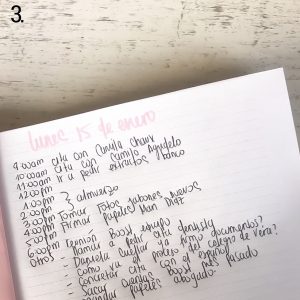 3.
lunes 15 de enero
9:00am cita con Camila Chaux
10:00am cita con Camilo Agudelo
11:00am ir a pedir extractos banco
12:00pm
1:00pm } almuerzo
2:00pm
3:00pm Tomar Fotos jabones nuevos
4:00pm Firmar papeles Mari Díaz
5:00pm
6:00pm - Reunión Boost equipo
otros - llamar a pedir cita dentista
- Daniela Cuellar ya firmó documentos?
- como va el proceso del colegio de Vera?
- concretar cita con el español
- sacar cuentas Boost mes pasado
- papeles abogado